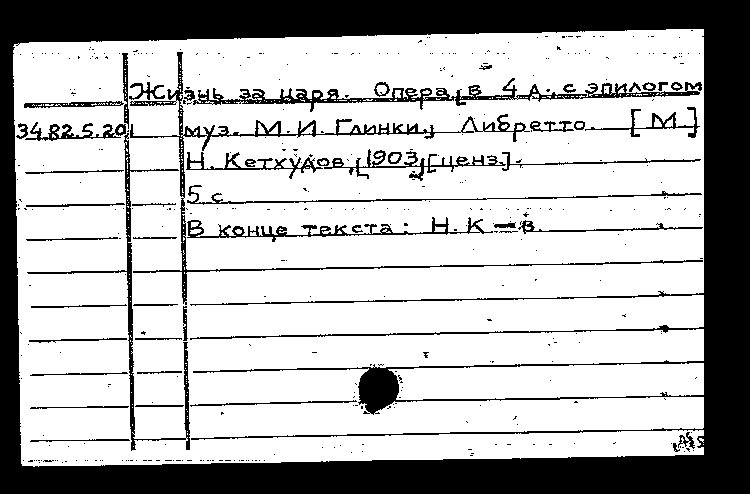 Жизнь за царя. Опера [в 4 д., с эпилогом
34.82.5.201 муз. М.И. Глинки.] Либретто. [М.]
Н. Кетхудов, [1903] [ценз.].
5 с.
В конце текста: Н. К — в.